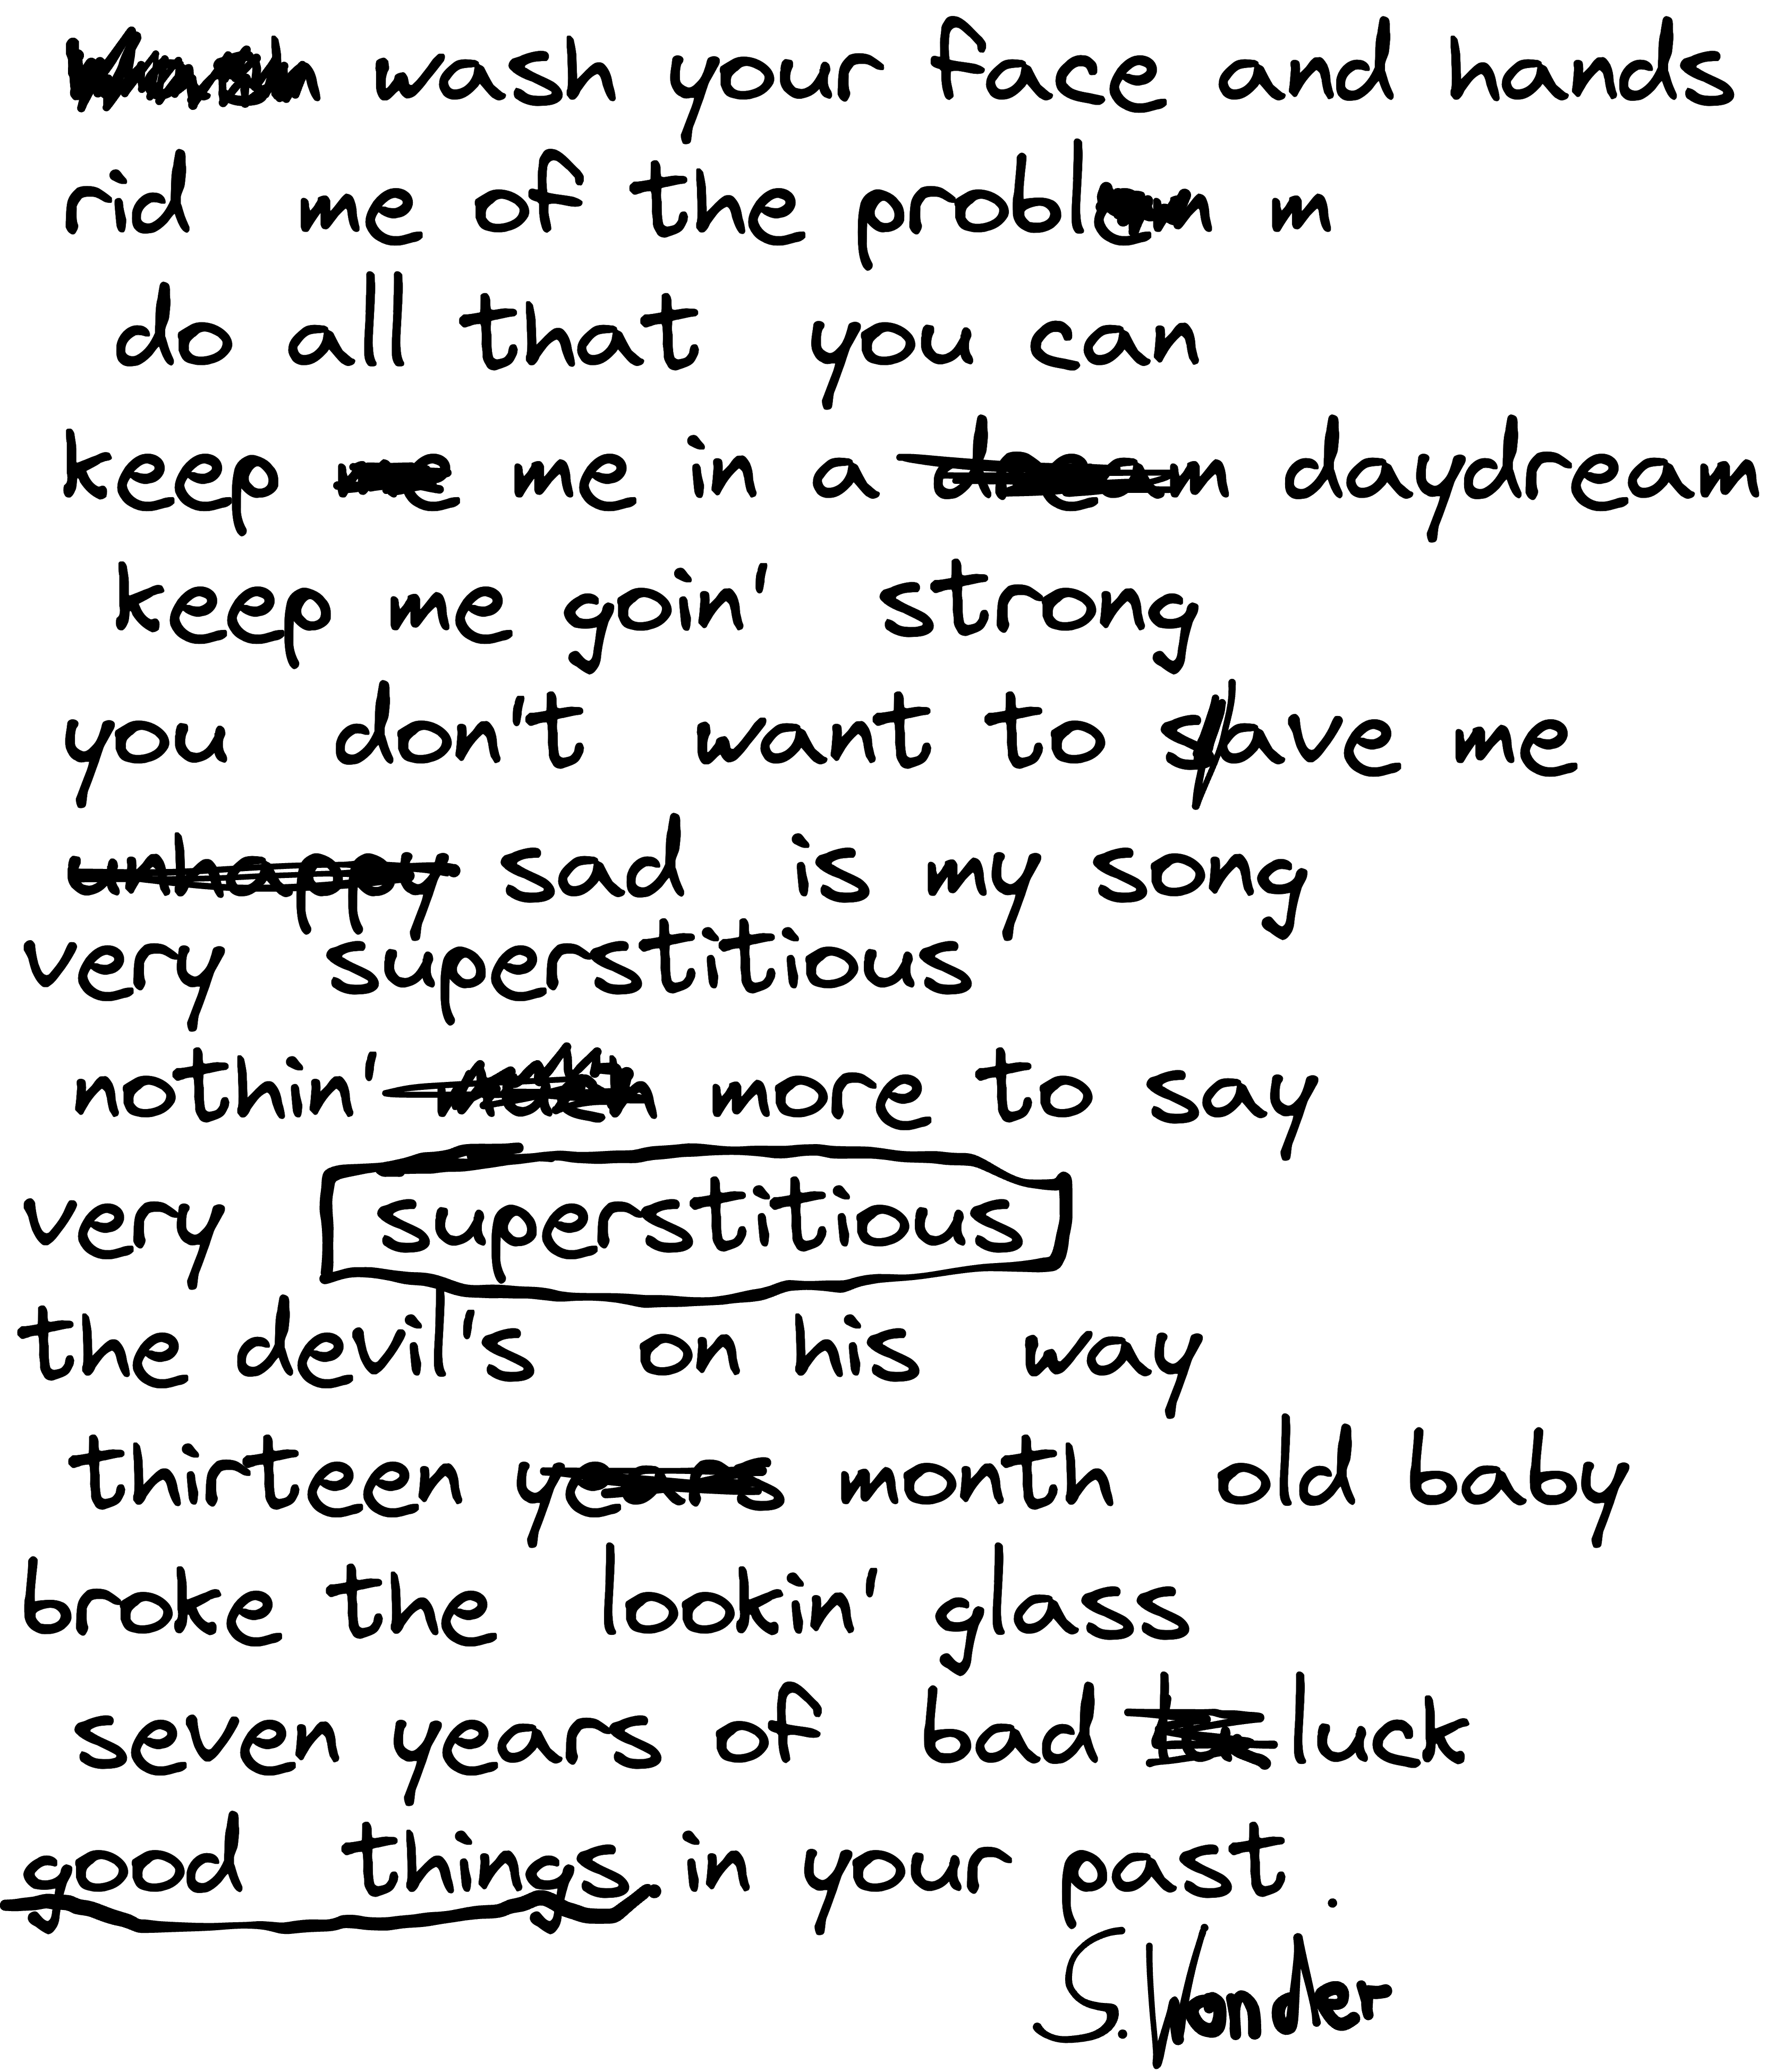 wash your face and hands
rid me of the problem
do all that you can
keep me me in a dream daydream
keep me goin' strong
you don't want to save me
unhappy sad is my song
very superstitious
nothin' more to say
very superstitious
the devil's on his way
thirteen years month old baby
broke the lookin' glass
seven years of bad luck
good things in your past.
S. Wonder